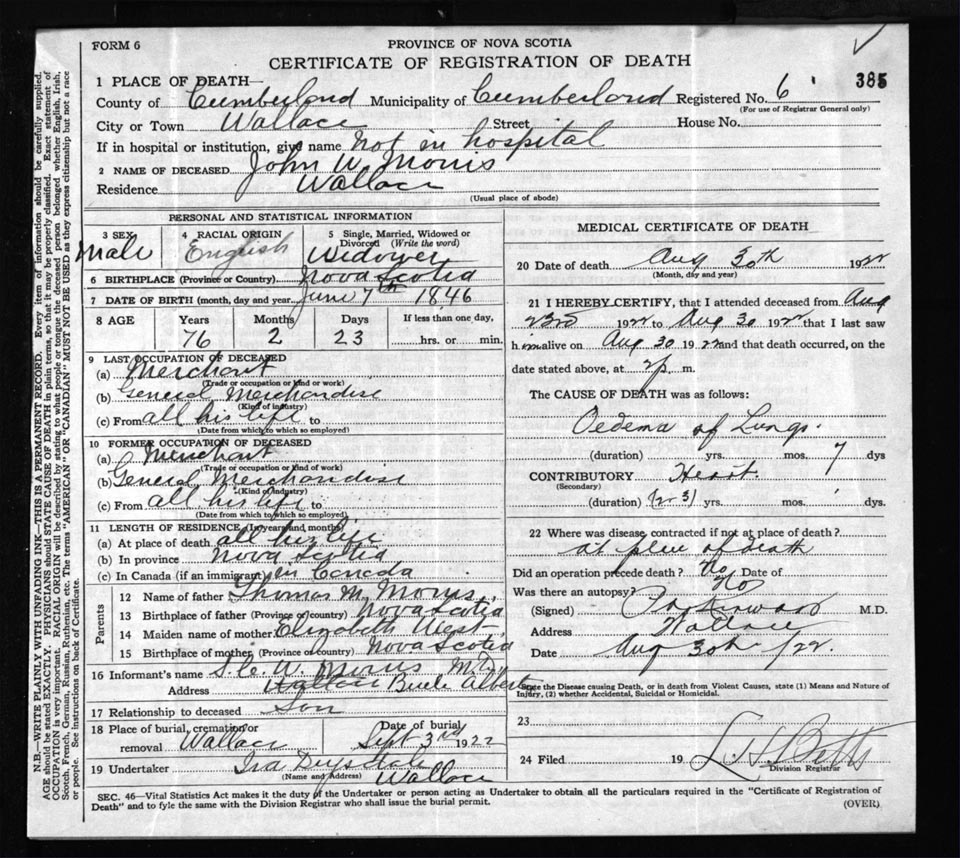 FORM 6
PROVINCE OF NOVA SCOTIA
CERTIFICATE OF REGISTRATION OF DEATH
385
1 PLACE OF DEATH—
County of Cumberland Municipality of Cumberland Registered No. 6
(For use of Registrar General only)
City or Town Wallace Street House No.
If in hospital or institution, give name Not in hospital
2 NAME OF DECEASED John W. Morris
Residence Wallace
(Usual place of abode)
PERSONAL AND STATISTICAL INFORMATION
3 SEX Male
4 RACIAL ORIGIN English
5 Single, Married, Widowed or Divorced (Write the word) Widower
6 BIRTHPLACE (Province or Country) Nova Scotia
7 DATE OF BIRTH (month, day and year) June 7th 1846
8 AGE Years Months Days If less than one day,
76 2 23 hrs. or min.
9 LAST OCCUPATION OF DECEASED
(a) Merchant
(Trade or occupation or kind or work)
(b) General Merchandise
(Kind of industry)
(c) From all his life to
(Date from to which so employed)
10 FORMER OCCUPATION OF DECEASED
(a) Merchant
(Trade or occupation or kind of work)
(b) General Merchandise
(Kind of industry)
(c) From all his life to
(Date from to which so employed)
11 LENGTH OF RESIDENCE (In years and months)
(a) At place of death all his life
(b) In province Nova Scotia
(c) In Canada (if an immigrant) in Canada
Parents
12 Name of father Thomas M. Morris
13 Birthplace of father (Province or country) Nova Scotia
14 Maiden name of mother Elizabeth West
15 Birthplace of mother (Province or country) Nova Scotia
16 Informant's name W. Morris
Address Albert
17 Relationship to deceased Son
18 Place of burial, cremation or removal Wallace
Date of burial Sept 3rd 1922
19 Undertaker Ira
(Name and Address) Wallace
MEDICAL CERTIFICATE OF DEATH
20 Date of death Aug 30th 1922
(Month, day and year)
21 I HEREBY CERTIFY, that I attended deceased from Aug
23rd 1922 to Aug 30 1922 that I last saw
him alive on Aug 30 1922 and that death occurred, on the
date stated above, at m.
The CAUSE OF DEATH was as follows:
Oedema of Lungs.
(duration) yrs. mos. 7 dys
CONTRIBUTORY Heart.
(Secondary)
(duration) (2 or 3) yrs. mos. dys.
22 Where was disease contracted if not at place of death?
at place of death
Did an operation precede death? No Date of
Was there an autopsy? No
(Signed) M.D.
Address Wallace
Date Aug 30th /22.
State the Disease causing Death, or in death from Violent Causes, state (1) Means and Nature of
Injury, (2) whether Accidental, Suicidal or Homicidal.
23
24 Filed 19 Betts
Division Registrar
SEC. 46—Vital Statistics Act makes it the duty of the Undertaker or person acting as Undertaker to obtain all the particulars required in the "Certificate of Registration of
Death" and to fyle the same with the Division Registrar who shall issue the burial permit.
(OVER)
N.B.—WRITE PLAINLY WITH UNFADING INK—THIS IS A PERMANENT RECORD. Every item of information should be carefully supplied.
AGE should be stated EXACTLY. PHYSICIANS should STATE CAUSE OF DEATH in plain terms, so that it may be properly classified. Exact statement of
OCCUPATION is very important. RACIAL ORIGIN will be described by stating to what people or tongue the deceased person belonged whether English, Irish,
Scotch, French, German, Russian, Ruthenian, etc. The terms "AMERICAN" OR "CANADIAN" MUST NOT BE USED as they express citizenship but not a race
or people. See instructions on back of Certificate.